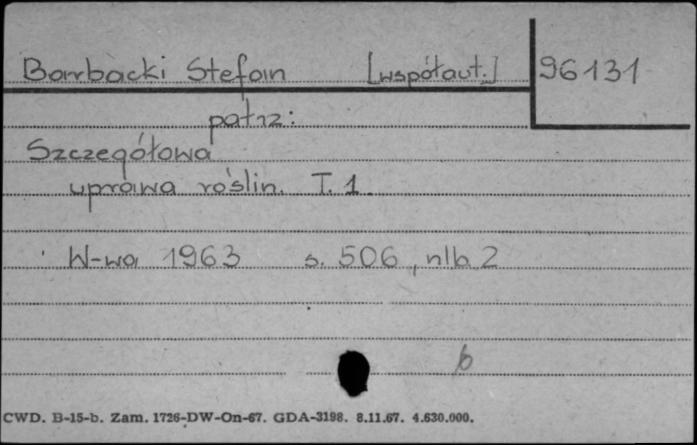 Barbacki Stefan [współaut.] 96131
patrz:
Szczegółowa
uprawa roślin. T. 1
W-wa 1963 s. 506, nlb 2
b
CWD. B-15-b. Zam. 1726-DW-On-67. GDA-3198. 8.11.67. 4.630.000.